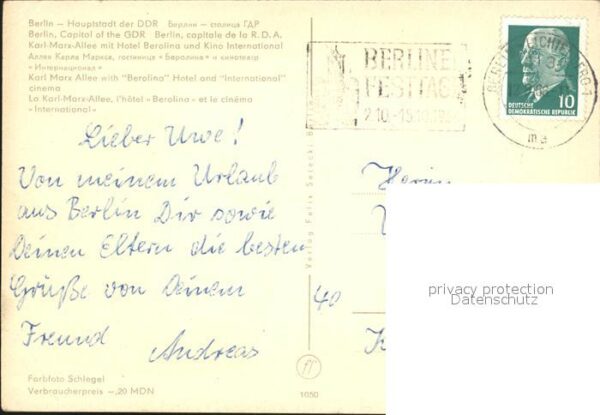 Berlin – Hauptstadt der DDR Берлин – столица ГДР
Berlin, Capitol of the GDR Berlin, capitale de la R.D.A.
Karl-Marx-Allee mit Hotel Berolina und Kino International
Аллея Карла Маркса, гостиница «Беролина» и кинотеатр
«Интернационал»
Karl Marx Allee with "Berolina" Hotel and "International"
cinema
La Karl-Marx-Allee, l'hôtel »Berolina« et le cinéma
»International«
BERLINER
FESTTAGE
2.10.-15.10.
BERLIN LICHTENBERG 1
ma
DEUTSCHE
DEMOKRATISCHE REPUBLIK
10
Lieber Uwe!
Von meinem Urlaub
aus Berlin Dir sowie
Deinen Eltern die besten
Grüße von Deinem
Freund Andreas
Herrn
40
K
Verlag Felix Setecki, Berlin
privacy protection
Datenschutz
Farbfoto Schlegel
Verbraucherpreis –,20 MDN
1050